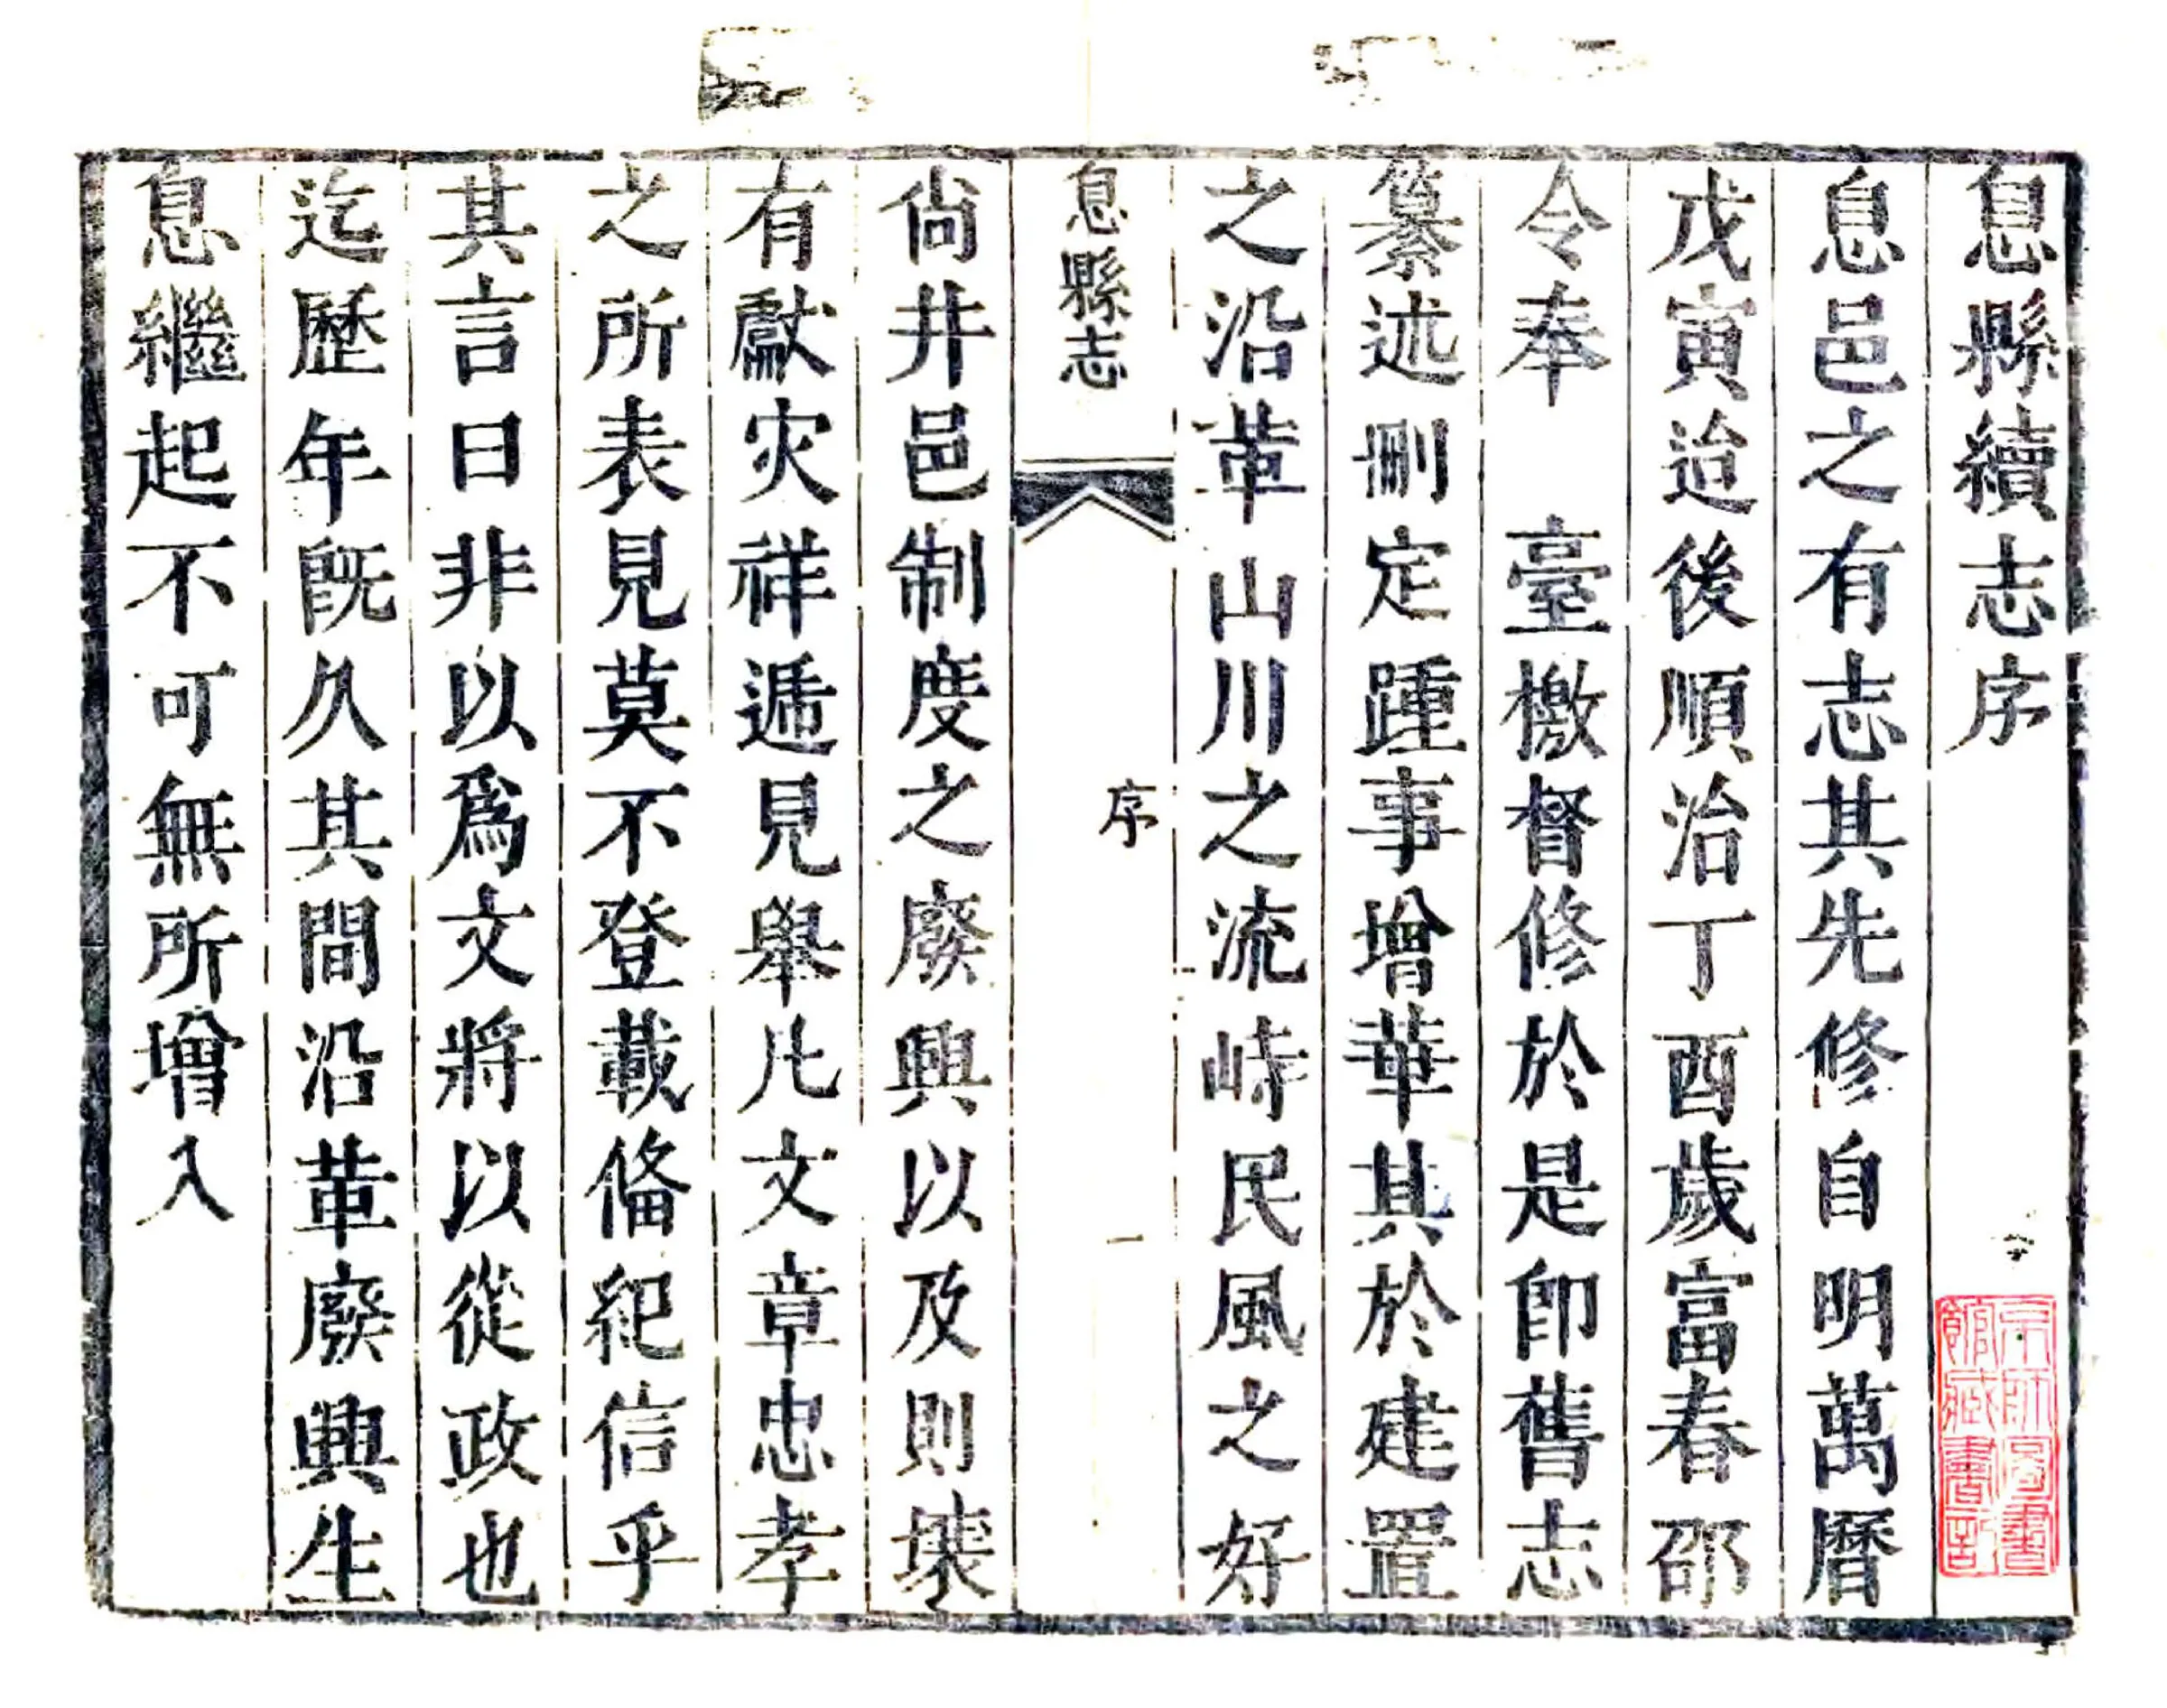 息縣續志序
息邑之有志其先修自明萬曆
戊寅迨後順治丁酉歲富春邵
令奉　臺檄督修於是卽舊志
纂述刪定踵事增華其於建置
之沿革山川之流峙民風之好
息縣志
序
一
尙井邑制度之廢興以及則壤
有獻灾祥遞見舉凡文章忠孝
之所表見莫不登載俻紀信乎
其言曰非以爲文將以從政也
迄歷年旣久其間沿革廢興生
息繼起不可無所增入